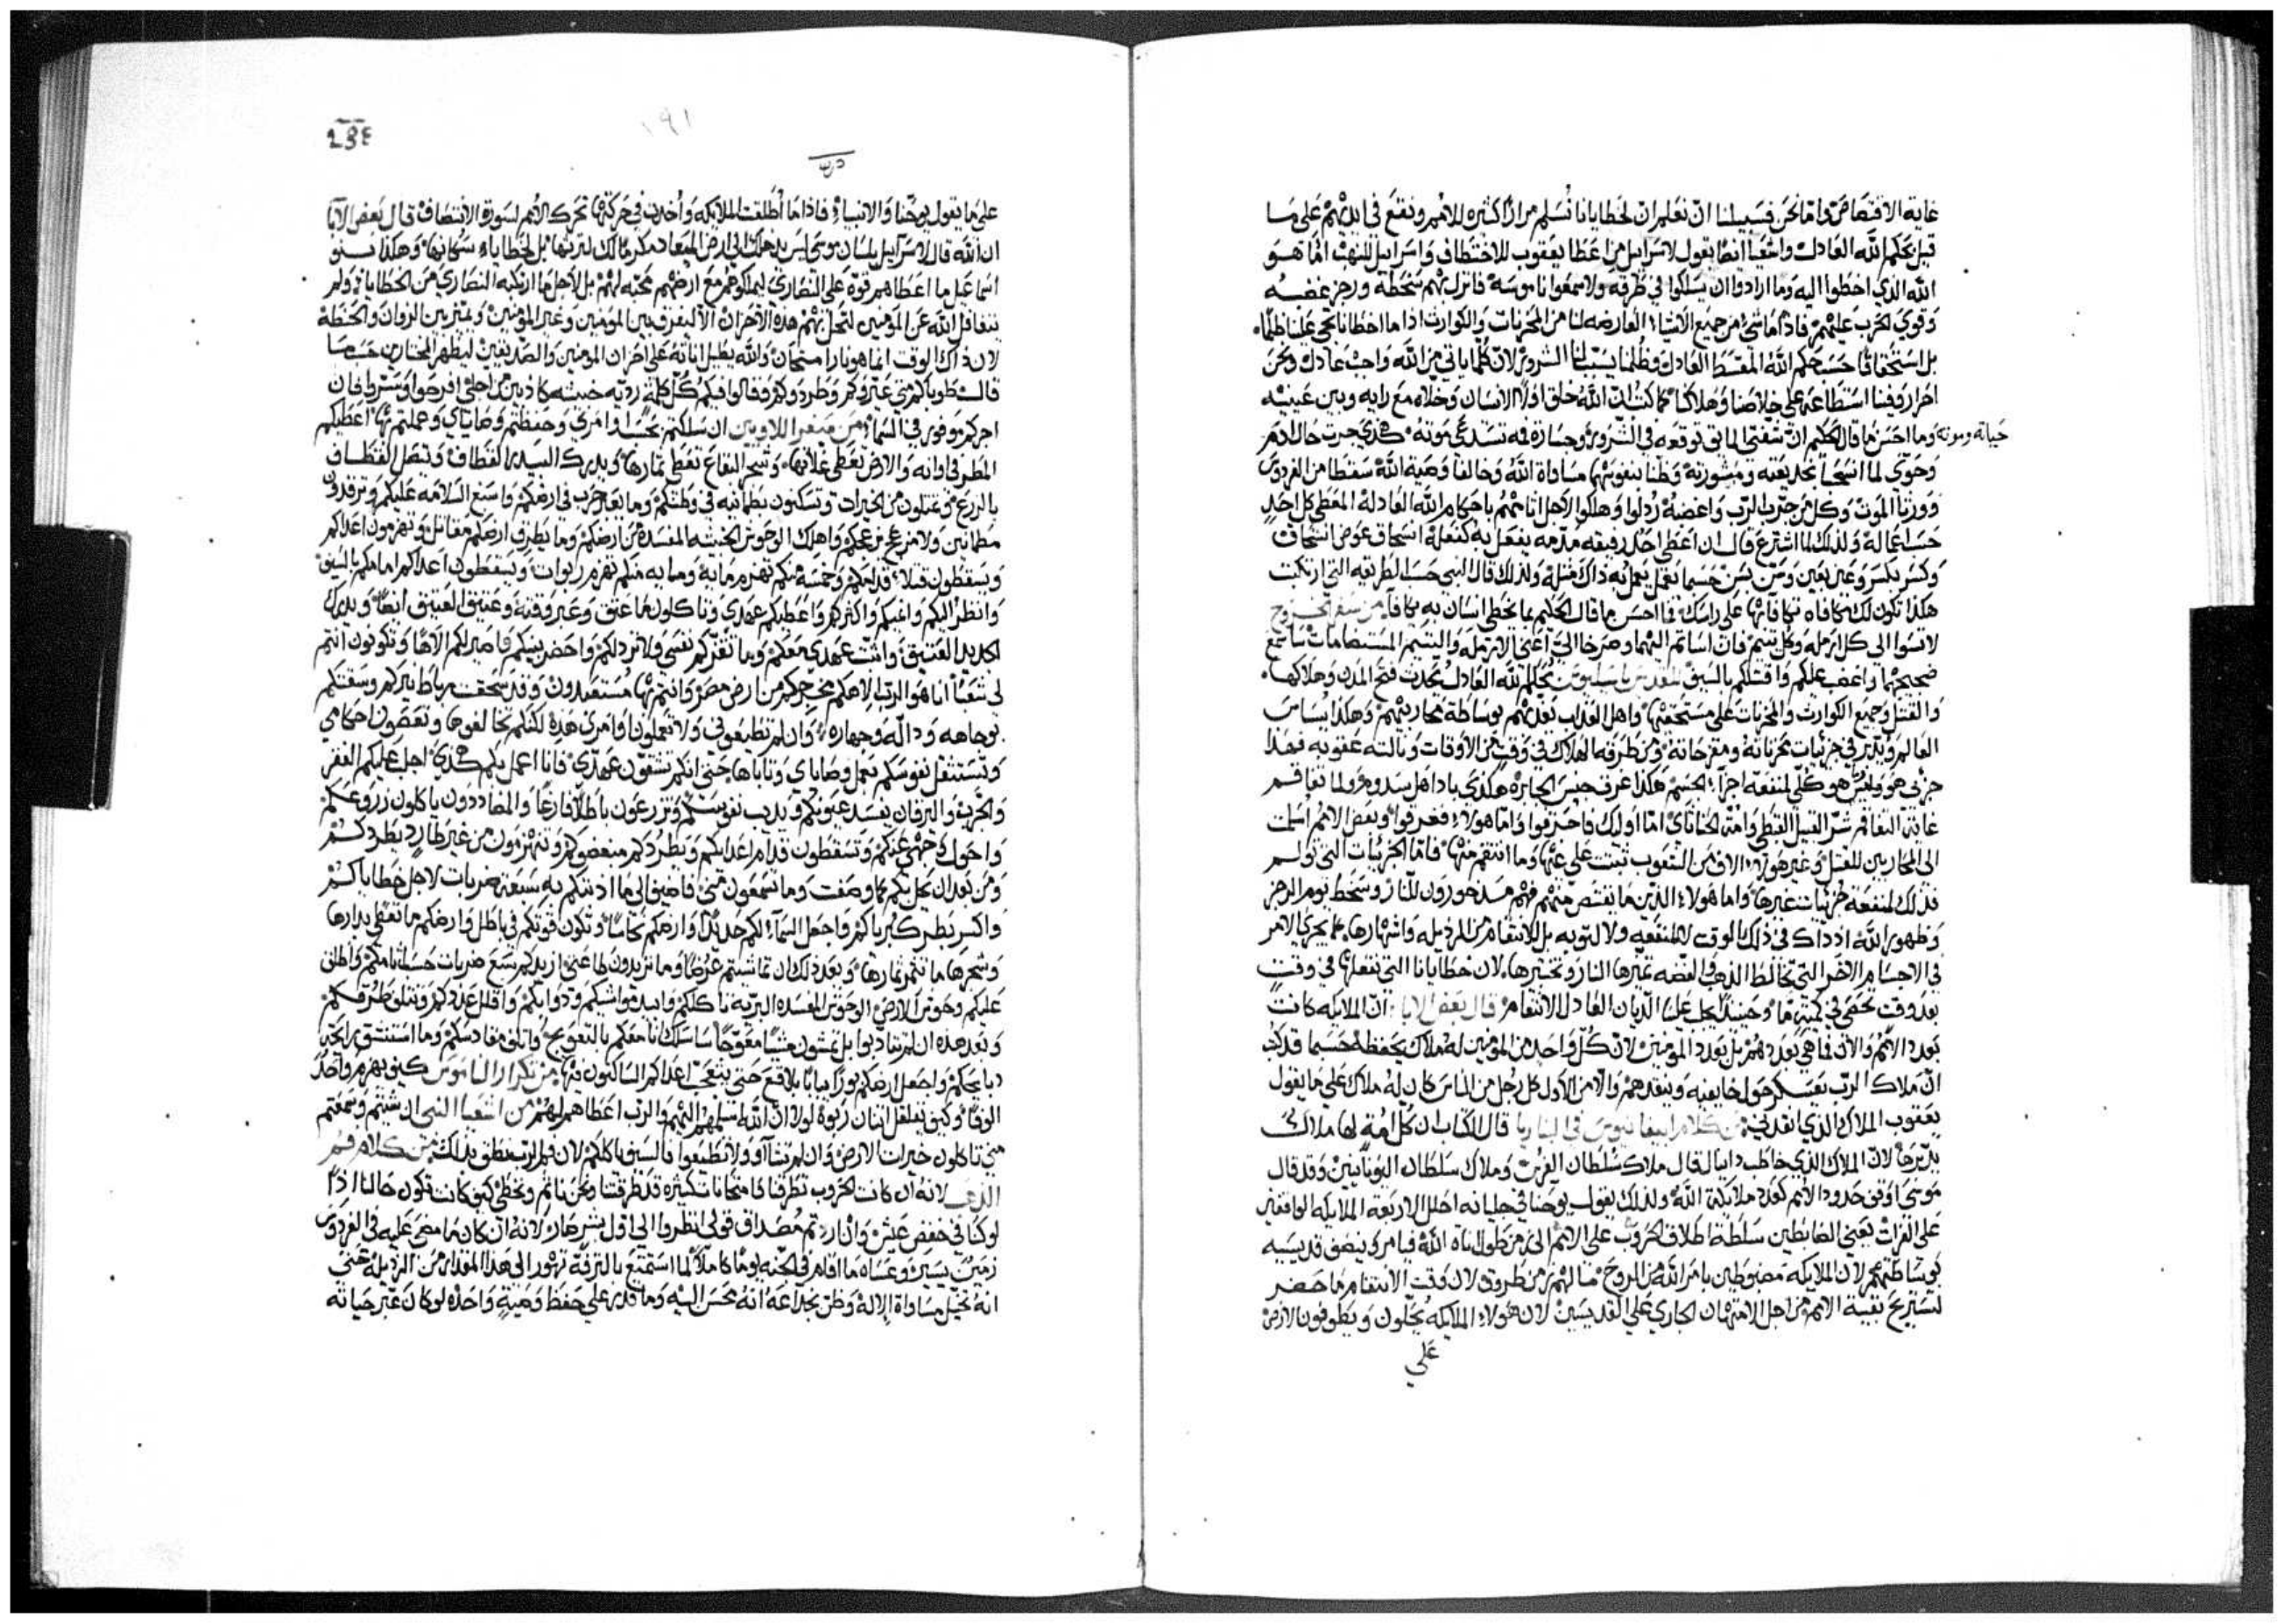 غاية الاقتصاص واما نحن فسبيلنا ان نعلم ان لخطايانا نسلم مرارًا كثيره للامم ونقع في ايديهم على ما
قبل بحكم الله العادل واشعيا ايضا يقول لاسراييل من عطا يعقوب للاختطاف واسراييل للنهب اما هو
الله الذي اخطوا اليه وما ارادوا ان يسلكوا في طرقه ولا سمعوا ناموسه فانزل بهم سخطه ورجز غضبه
وقوي الحرب عليهم فاذًا ما شي من جميع الاشيا العارضه لنا من المحزنات والكوارث اذا ما اخطانا تجي علينا ظلمًا
بل استحقاقًا حسب حكم الله المقسط العادل وظلما يسبب لنا الشرور لان كلما ياتي من الله واجب عادل ونحن
احرار وفينا استطاعه على خلاصنا وهلاكنا كما كتب ان الله خلق اولًا الانسان وخلاه مع رايه وبين عينيه
حياته وموته
وما احسن ما قال الحكيم ان شفتي المايق توقعه في الشرور وجسارة فمه تستدعي موته هكذي جرت حال ادم
وحوي لما انتصحا بخديعته ومشورته وظنا بنفوسهما مساواة الله وخالفا وصية الله سقطا من الفردوس
وورثا الموت وكل من جرب الرب واغضبه رذلوا وهلكوا لاجل اثامهم باحكام الله العادلة المعطي كل احد
حسب اعماله ولذلك لما اشترع قال ان اعطى احد رفيقه مذمه يفعل به كفعله انسحاق عوض انسحاق
وكسر بكسر وعين بعين وسن بسن حسبما يفعل يعمل به ذاك مثله ولذلك قال النبي حسب الطريقه التي ارتكبت
هكذا تكون لك مكافاه مكافاتها على راسك فما احسن ما قال الحكيم بما يخطي انسان به يكافا من سفر الخروج
لا تسوا الى كل ارمله وكل يتيم فان اساتم اليهما وصرخا الي اعني الارمله واليتيم المستضامات ساسمع
ضجيجهما واغضب عليكم واقتلكم بالسيف للقديس باسيليوس بحكم الله العادل تحدث فتح المدن وهلاكها
والقتل وجميع الكوارث والمحزنات على مستحقيها واهل العذاب يعذبهم بوساطة محاربيهم وهكذا يساس
العالم ويدبر في جزئيات محزناته ومفرحاته
غاية التفاقم شر القبيل القبطي وامة الخاناي اما اوليك فاحترقوا واما هولاء فغرقوا وبعض الامم اسلمت
الى المحاربين للقتل
وظهور الله اذ ذاك في ذلك الوقت لا للمنفعه ولا لتوبه بل للانتقام من الرذيله واشهارها كما يجري الامر
في الاجسام الاخر التي تخالط الذهب والفضه تميزها النار وتختبرها لان خطايانا التي نفعلها في وقت
بعد وقت تخفي في كمية ما وحينيذ يجلب علينا الديان العادل الانتقام قال بعض الابا ان الملايكه كانت
بعدد الامم والان فما هي بعددهم بل بعدد المومنين لان كل واحد من المومنين له ملاك يحفظه حسبما قد كتب
ان ملاك الرب يعسكر حول خايفيه وينقذهم والان من الاول كل رجل من الناس كان له ملاك على ما يقول
يعقوب الملاك الذي انقذني من كلام ابيفانيوس في الباريا قال الكتاب ان كل امة لها ملاك
يدبرها لان الملاك الذي خاطب دانيال قال ملاك سلطان الفرس وملاك سلطان اليونانيين وقد قال
موسى اوقف حدود الامم كعدد ملايكة الله ولذلك يقول يوحنا في جليانه احلل الاربعه الملايكه الواقفين
على الفرات يعني الضابطين سلطة اطلاق الحروب على الامم
بوساطتهم لان الملايكه مضبوطين بامر الله من الروح
لتستريح بقية الامم من اجل الامتهان الجاري على القديسين لان هولاء الملايكه يحلون ويطوفون الارض
على
191
على ما يقول يوحنا والانبياء فاذا ما اطلقت الملايكه واخذت في حركتها تحرك الامم لسورة الانتصاف قال بعض الابا
ان الله قال لاسراييل بلسان موسى ليس يدخلك الى ارض الميعاد مكرمًا لك لترثها بل لخطاياء سكانها وهكذا بنو
اسماعيل ما اعطاهم قوة على النصارى ليملكوهم مع ارضهم محبه لهم بل لاجل ما ارتكبه النصارى من الخطايا ولم
يتغافل الله عن المومنين لتحل بهم هذه الاحزان الا ليفرق بين المومنين وغير المومنين ويميز بين الزوان والحنطة
لان ذاك الوقت انما هو نارا امتحان والله يطيل اناته على احزان المومنين والصديقين ليظهر المختارين حسبما
قال طوباكم متى عيروكم وطردوكم وقالوا فيكم كل كلمة رديه خبيثه كاذبين من اجلي افرحوا وسروا فان
اجركم موفور في السما من سفر اللاويين ان سلكتم بحسب اوامري وحفظتم وصاياي وعملتم بها اعطيكم
المطر في اوانه والارض تعطي غلاتها وشجر البقاع تعطي ثمارها ويدرك البيدر القطاف ويتصل القطاف
بالزرع وتمتلون من الخيرات وتسكنون بطمانيه في وطنكم وما تعبر حرب في ارضكم واسبغ السلامة عليكم وترقدون
مطمانين ولا مزعج يزعجكم واهلك الوحوش الخبيثه المفسده من ارضكم وما يطرق ارضكم مقاتل وتهزمون اعداكم
ويسقطون قتلاء قدامكم وخمسه منكم تهزم مايه ومايه منكم تهزم ربوات ويسقطون اعداكم امامكم بالسيف
وانظر اليكم وانميكم واكثركم واعطيكم عهدي وتاكلون ما عتق وعبر وقته وعتيق العتيق ايضًا ويدرك
الجديد العتيق واثبت عهدي معكم وما تقذركم نفسي ولا ترذلكم واحضر بينكم واصير لكم الاهًا وتكونون انتم
لي شعبًا انا هو الرب الاهكم مخرجكم من ارض مصر وانتم بها مستعبدون وقد سحقت رباط نيركم وسقتكم
بوجاهه ودالة وجهاره وان لم تطيعوني ولا تعملون اوامري هذه لكنكم تخالفوها وتعصون احكامي
وتستثقل نفوسكم بعمل وصاياي وتاباها حتى انكم تنقضون عهدي فانا اعمل بكم هكذي اجلب عليكم الفقر
والجرب واليرقان يفسد عيونكم ويذيب نفوسكم وتزرعون باطلًا فارغًا والمضاددون ياكلون زروعكم
واحول وجهي عنكم وتسقطون قدام اعدايكم ويطردكم مبغضوكم وتنهزمون من غير طارد يطردكم
ومن بعد ان يحل بكم كما وصفت وما تسمعون مني فاضيف الى ما ادبتكم به سبعة ضربات لاجل خطاياكم
واكسر بطر كبرياكم واجعل السماء لكم حديدًا وارضكم نحاسًا وتكون قوتكم في باطل وارضكم ما تعطي بدارها
وشجرها ما تثمر ثمارها وبعد ذلك ان تماشيتم عرضًا وما تريدون لطاعتي ازيدكم سبع ضربات حسب اثامكم واطلق
عليكم وحوش الارض الوحوش المفسده البريه تاكلكم وابيد مواشيكم ودوابكم واقلل عددكم وتتلف طرقكم
وبعد هذه ان لم تتادبوا بل تمشون مشيًا معوجًا ساسلك انا معكم بالتعويج واتلف مقادسكم وما استنشق رايحة
ذبايحكم واجعل ارضكم بورًا يبابًا بلاقع حتى يتعجب اعداكم الساكنون فيها من تكرار الناموس كيف يهزم واحد
الوفًا وكيف يقلقل اثنان ربوة لولا ان الله سلمهم اليهم والرب اعطاهم لهم من اشعيا النبي ان شيتم وسمعتم
مني تاكلون خيرات الارض وان لم تشآوو ولا تطيعوا فالسيف ياكلكم لان فم الرب نطق بذلك من كلام فم
الذهب لانه ان كانت الحروب تطرقنا وامتحانات كثيره قد طرقتنا ونحن ناثم ونخطي كيف كانت تكون حالنا اذًا
لو كنا في خفض عيش وانار ثم مصداق قولي انظروا الى اول بشر
زمن يسير وعساه ما اقام في الجنه يومًا كاملًا لما استمتع بالترفة تهور الى هذا المقدار من الرذيلة حتى
انه تخيل مساواة الالة وظن بخداعه انه محسن اليه وما قدر على حفظ وصية واحده لو كان عبر حياته